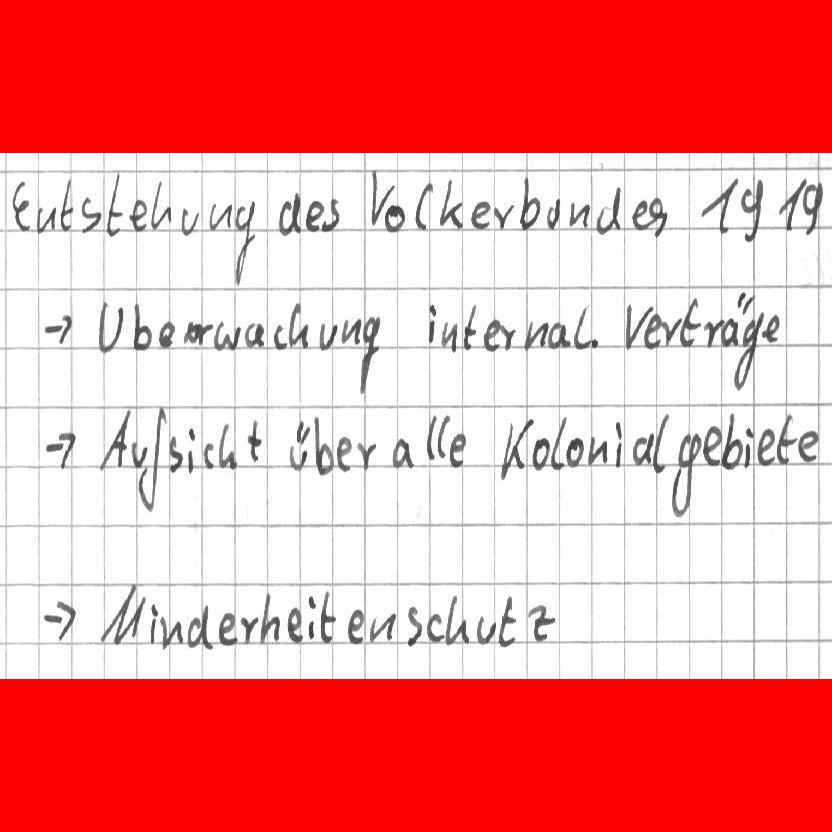 Entstehung des Volkerbundes 1919
→ Uberwachung internat. Verträge
→ Aufsicht über alle Kolonialgebiete
→ Minderheitenschutz